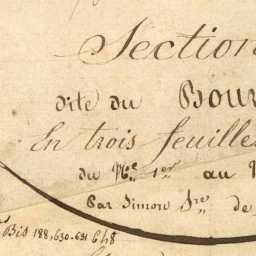 Section
dite du Bour
En trois feuilles
du N.º 1.er au
Par Simon
Bis 188,630.631 648